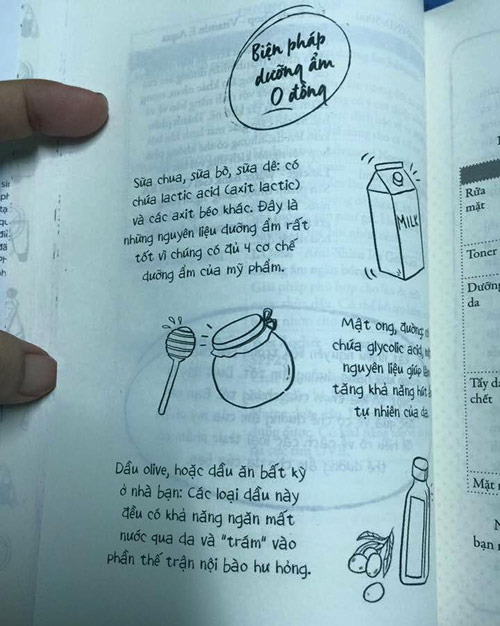 Biện pháp
dưỡng ẩm
0 đồng
Sữa chua, sữa bò, sữa dê: có
chứa lactic acid (axit lactic)
và các axit béo khác. Đây là
những nguyên liệu dưỡng ẩm rất
tốt vì chúng có đủ 4 cơ chế
dưỡng ẩm của mỹ phẩm.
MILK
Mật ong, đường
chứa glycolic acid,
nguyên liệu giúp
tăng khả năng hút
tự nhiên của da
Dầu olive, hoặc dầu ăn bất kỳ
ở nhà bạn: Các loại dầu này
đều có khả năng ngăn mất
nước qua da và "trám" vào
phần thế trận nội bào hư hỏng.
Rửa
mặt
Toner
Dưỡng
da
Tẩy da
chết
Mặt
bạn